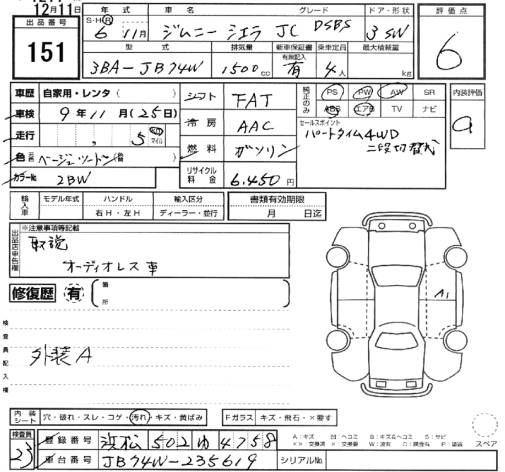 12月11日
出品番号 151
年式 車名 グレード ドア・形状 評価点
S・H・R 6年 11月 ジムニー シエラ JC DSBS 3 SW 6
型式 排気量 新車保証書 乗車定員 最大積載量
3BA-JB74W 1500cc 有無記入 有 4人 kg
車歴 自家用・レンタ シフト FAT 純正のみ PS PW AW SR 内装評価
車検 9年11月(25日) 冷房 AAC ABS エアB TV ナビ a
走行 , 5 マイル 燃料 ガソリン セールスポイント
パートタイム4WD
二段切替式
色 ベージュツートン
カラーNo. 2BW リサイクル料金 6,450円
輸入車 モデル年式 ハンドル 輸入区分 書類有効期限
右H・左H ディーラー・並行 月 日迄
出品店申告欄 ※注意事項等記載
取説
オーディオレス車
修復歴 有 箇所
A1
検査員記入欄
外装A
内装シート 穴・破れ・スレ・コゲ・汚れ・キズ・黄ばみ Fガラス キズ・飛石・×要す
検査員 23 登録番号 浜松 502 ゆ 4758
車台番号 JB74W-235619 シリアルNo.
A:キズ U:ヘコミ B:キズ&ヘコミ S:サビ
スペア